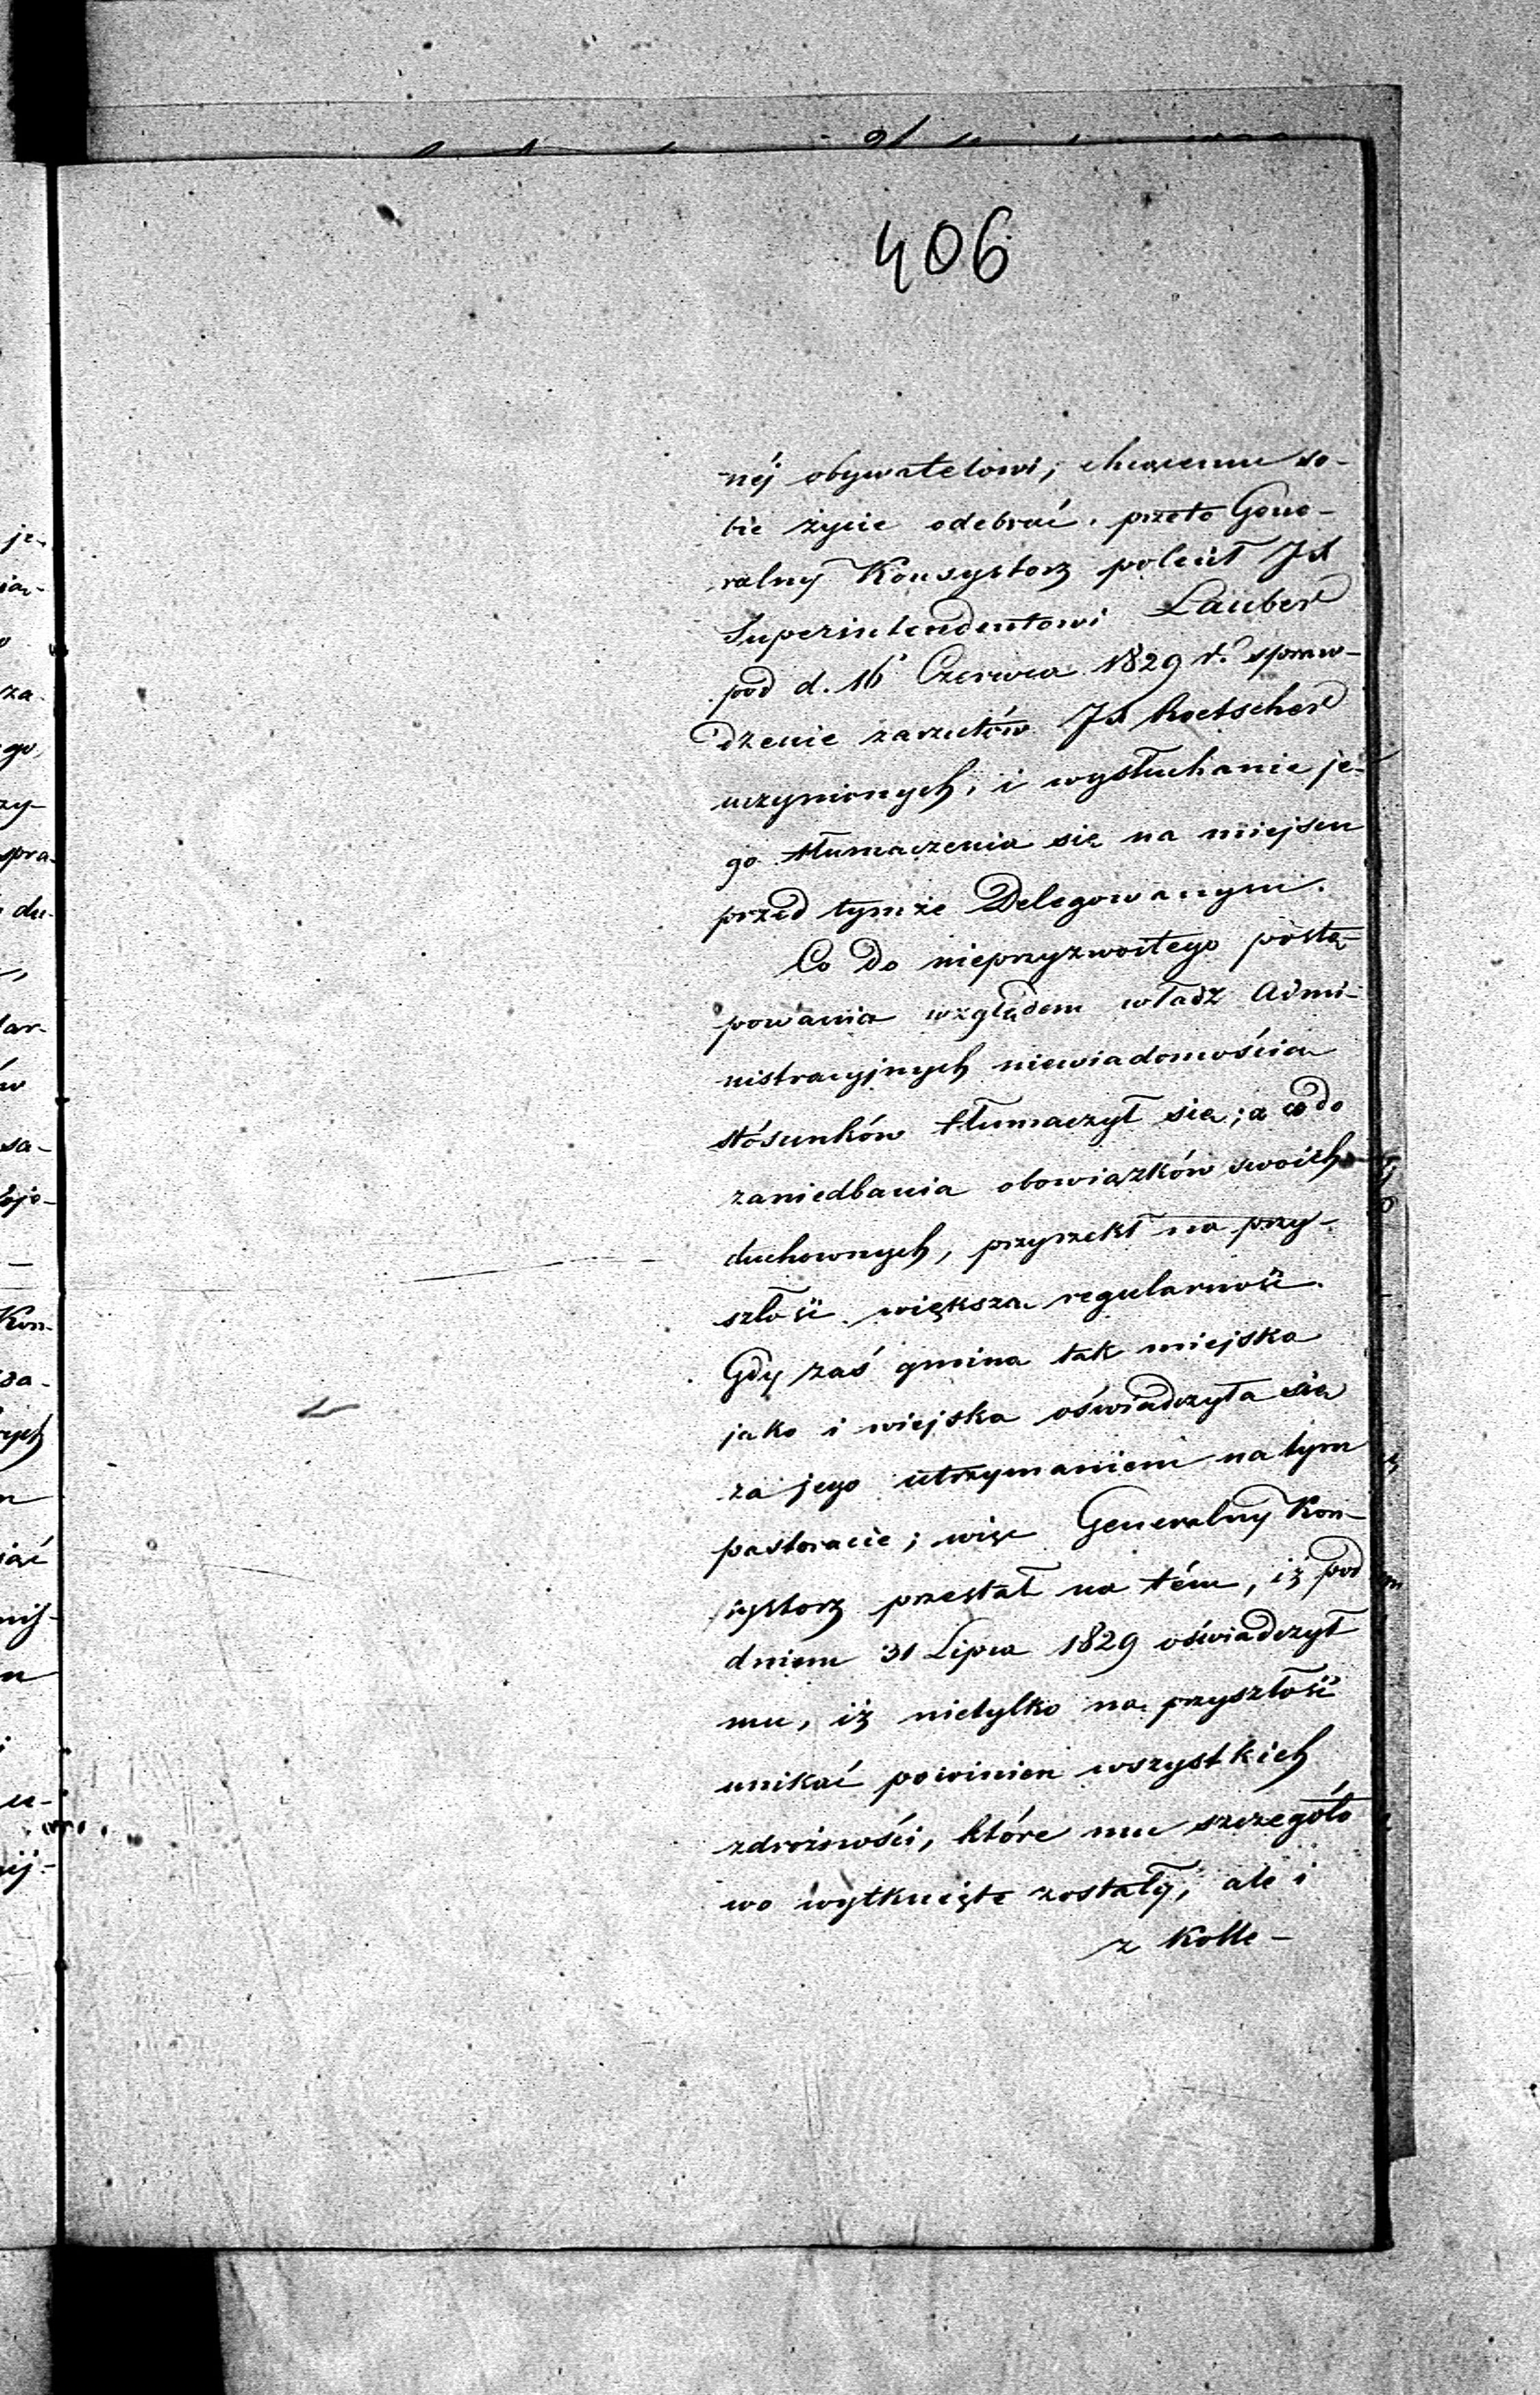 406
néj obywatelowi, chcącemu so-
bie życie odebrać, przeto Gene-
ralny Konsystorz polecił Jx
Superintendentowi Lauber
pod d. 16 Czerwca 1829 r. spraw-
dzenie zarzutów Jx Roetscher
uczynionych, i wysłuchanie je-
go tłumaczenia się na miejscu
przed tymże Delegowanym.
Co do nieprzyzwoitego postę-
powania względem władz Admi-
nistracyjnych niewiadomością
stósunków tłumaczył się; a co do
zaniedbania obowiązków swoich
duchownych, przyrzekł na przy-
szłość większą regularność.
Gdy zaś gmina tak miejska
jako i wiejska oświadczyła się
za jego utrzymaniem na tym
pastoracie; więc Generalny Kon-
systorz przestał na tém, iż pod
dniem 31 Lipca 1829 oświadczył
mu, iż nietylko na przyszłość
unikać powinien wszystkich
zdrożności, które mu szczegóło
wo wytknięte zostały, ale i
z Kolle-
je-
za-
go,
zy-
spra-
du-
lar-
sa-
Kon-